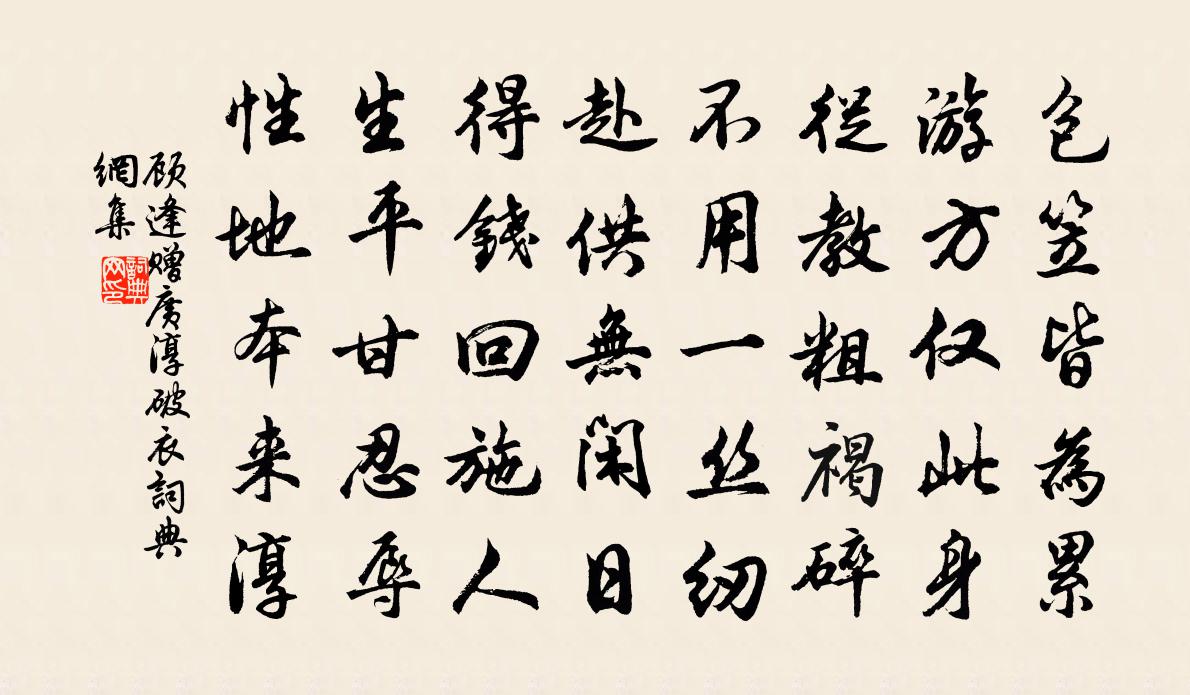 包笠皆為累
游方仅此身
從教粗褐碎
不用一丝纫
赴供無闲日
得錢回施人
生平甘忍辱
性地本来淳
顾逢赠廣淳破衣詞典
網集
詞典網印